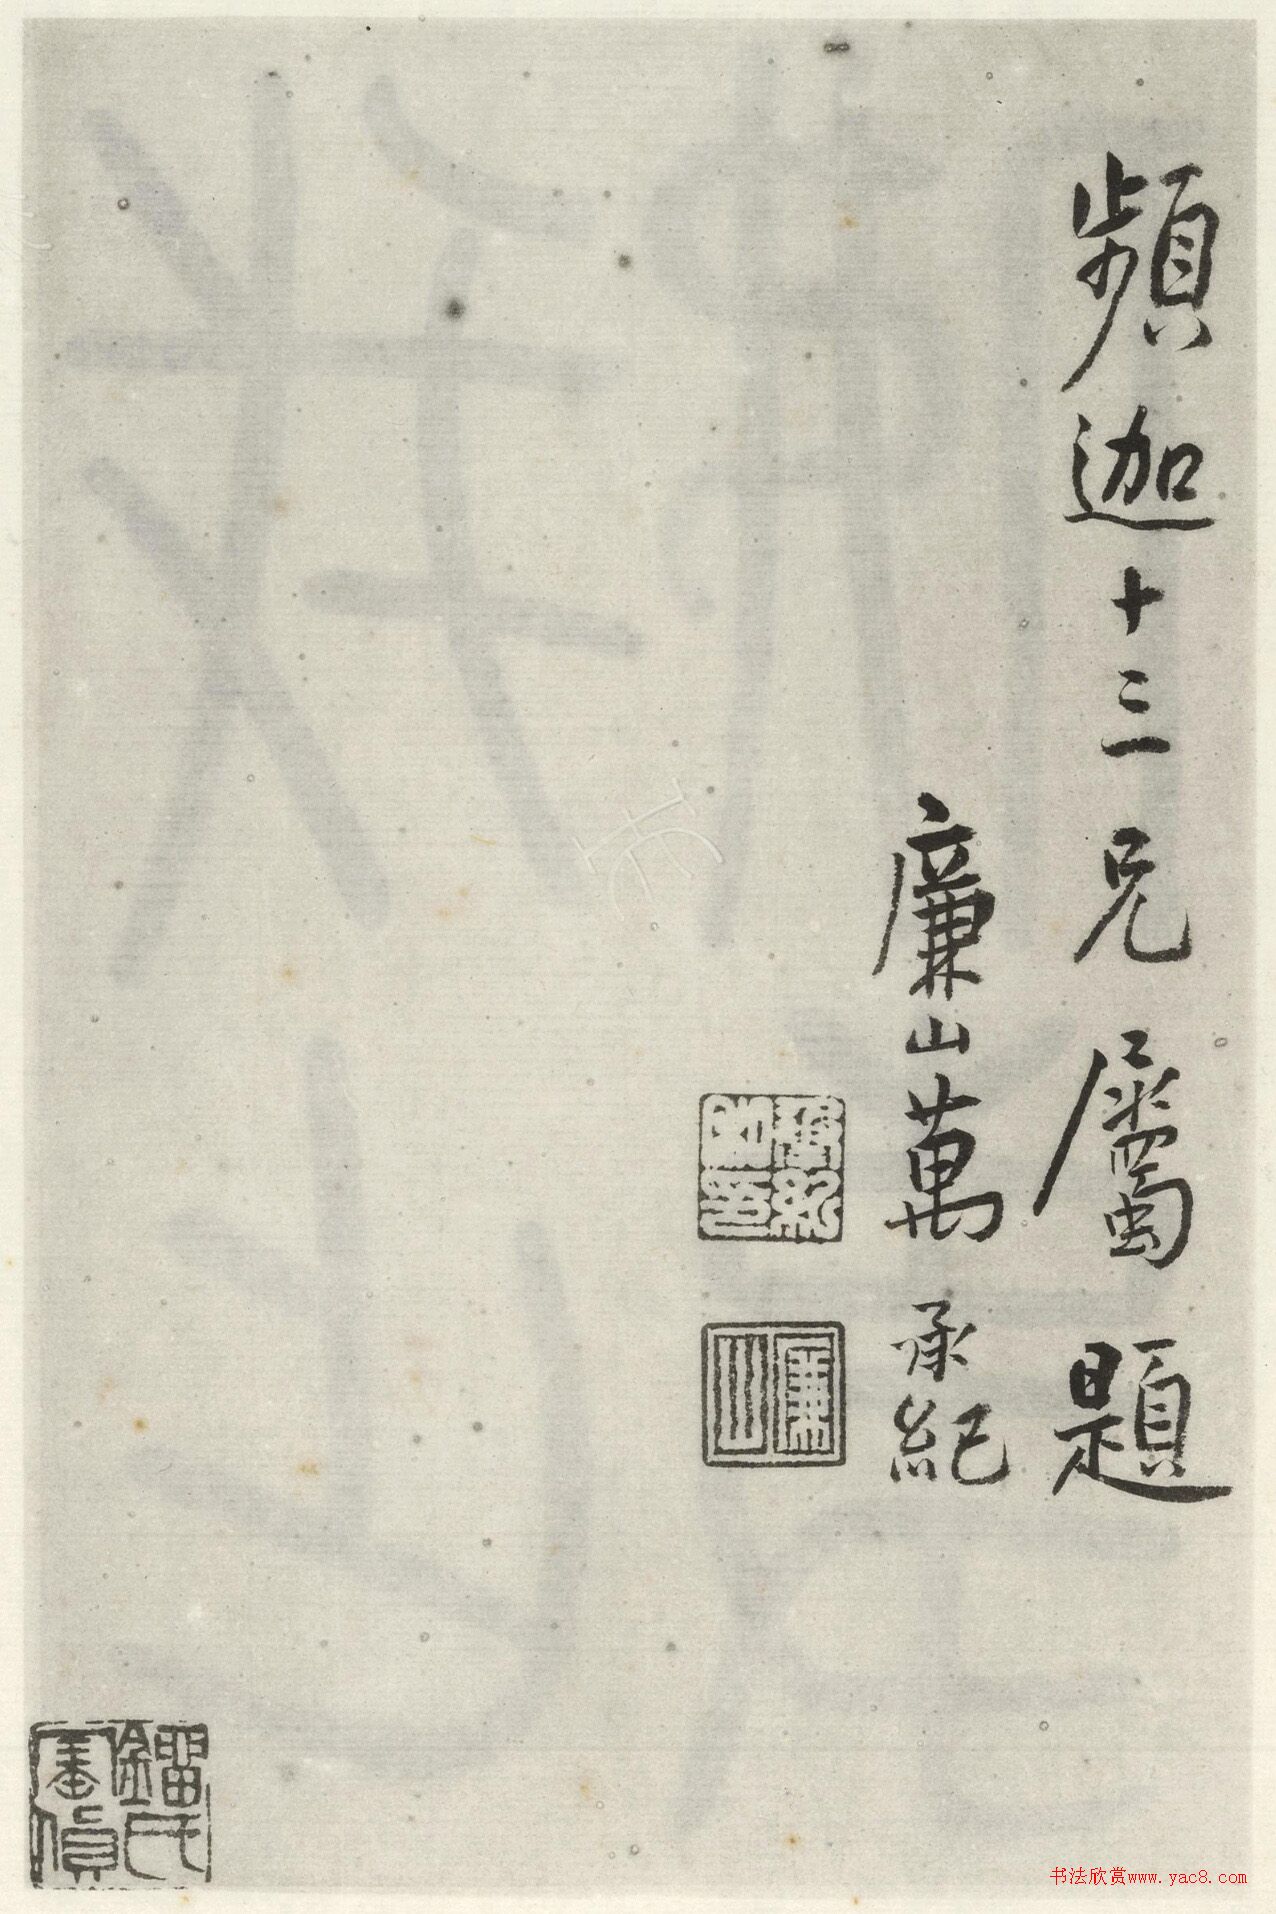 頻迦十三兄屬題
廉山萬承紀
承紀
廉山
书法欣赏www.yac8.com